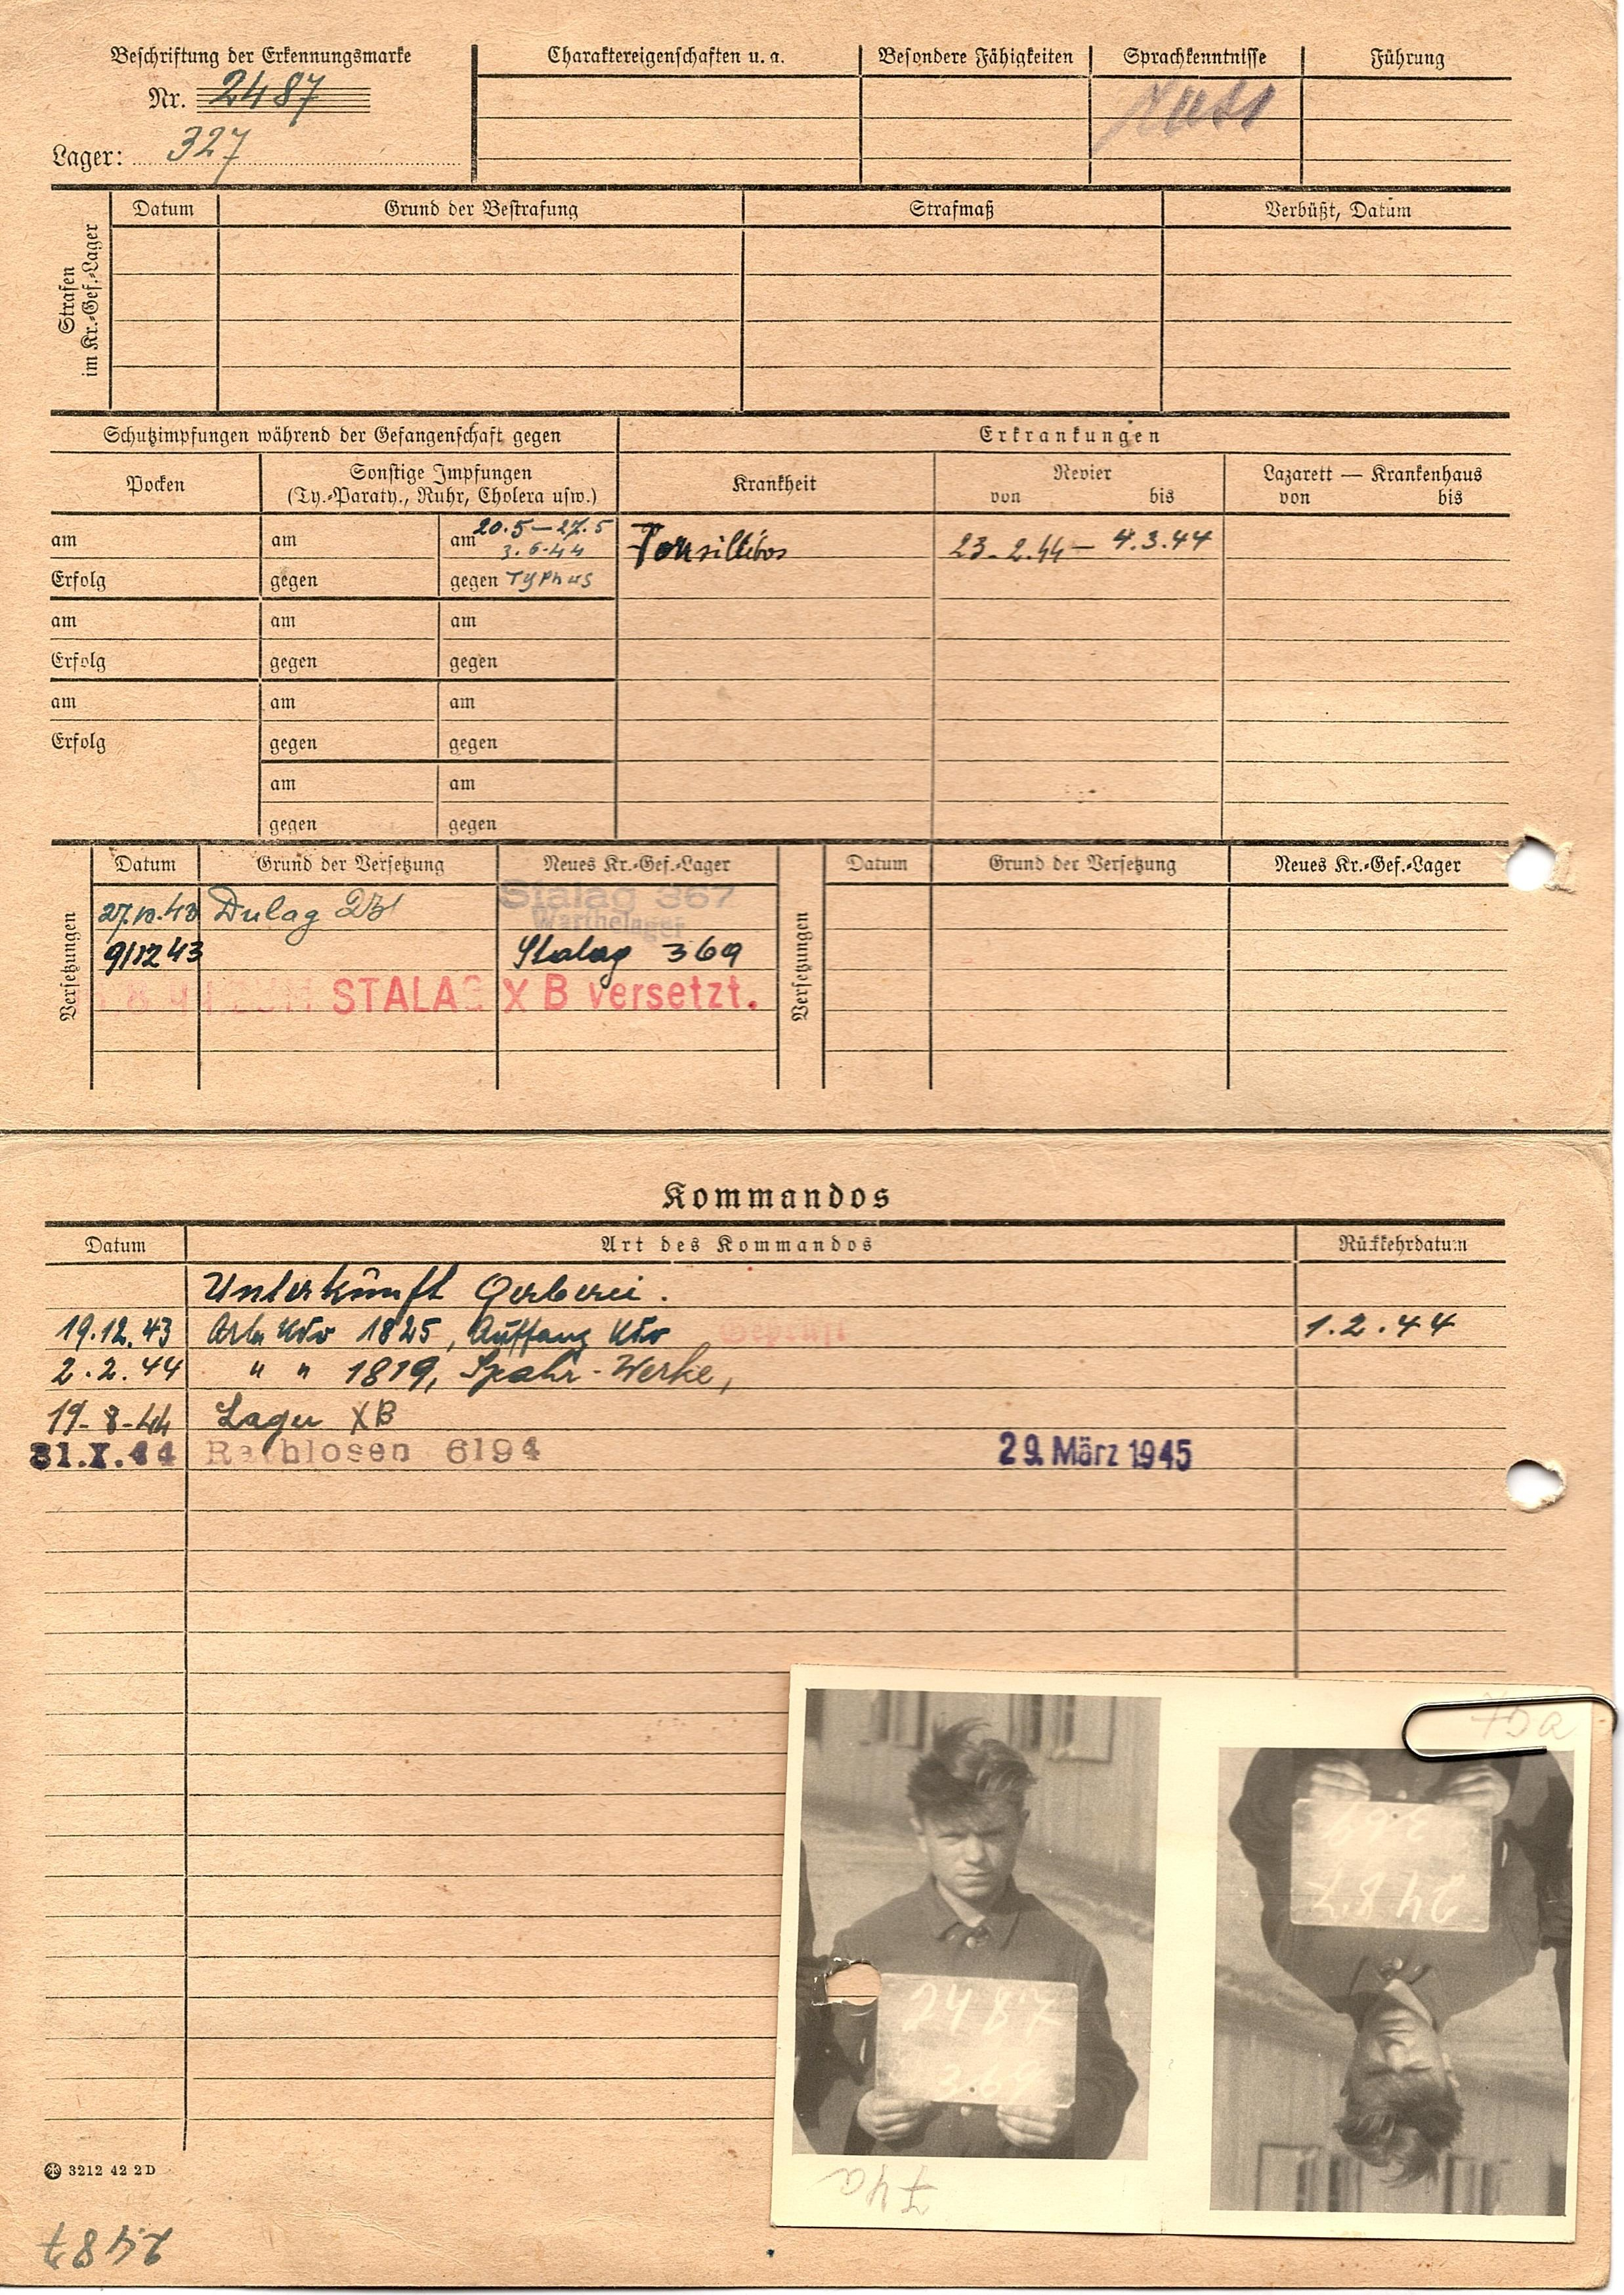 Beschriftung der Erkennungsmarke
Nr. 2487
Lager: 327
Charaktereigenschaften u. a.
Besondere Fähigkeiten
Sprachkenntnisse
Führung
Strafen
im Kr.-Gef.-Lager
Datum
Grund der Bestrafung
Strafmaß
Verbüßt, Datum
Schutzimpfungen während der Gefangenschaft gegen
Erkrankungen
Pocken
Sonstige Impfungen
(Ty.-Paraty., Ruhr, Cholera usw.)
Krankheit
Revier
von bis
Lazarett — Krankenhaus
von bis
am am am 20.5–27.5
3.6.44
Erfolg gegen gegen Typhus
23.2.44 – 4.3.44
am am am
Erfolg gegen gegen
am am am
Erfolg gegen gegen
am am
gegen gegen
Versetzungen
Datum Grund der Versetzung Neues Kr.-Gef.-Lager
Stalag 367
Warthelager
Dulag
9/12 43 Stalag 369
STALAG X B versetzt.
Versetzungen
Datum Grund der Versetzung Neues Kr.-Gef.-Lager
Kommandos
Datum Art des Kommandos Rückkehrdatum
Unterkunft Gerberei.
19.12.43 Arb. Kdo 1825, Auffang Kdo Geprüft 1.2.44
2.2.44 " " 1819, Spahr-Werke,
19-8-44 Lager XB
31.X.44 Rathlosen 6194 29. März 1945
75a
2487
369
2487
369
74a
3212 42 2D
2487